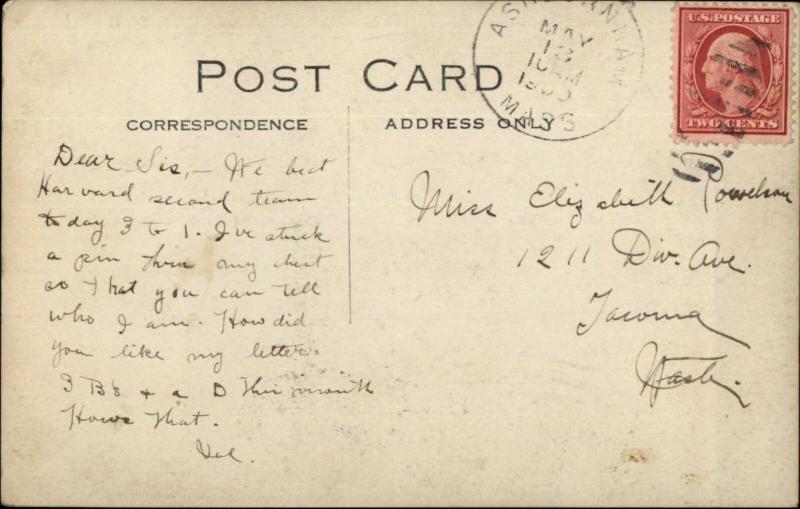 ASHBURNHAM
MAY
13
10 AM
1909
MASS
U.S. POSTAGE
TWO CENTS
POST CARD
CORRESPONDENCE
ADDRESS ONLY
Dear Sis, - We beat
Harvard second team
today 3 to 1. I've stuck
a pin thru my chest
so that you can tell
who I am. How did
you like my letter.
3 Bs + a D this month
Hows that.
Miss Elizabeth
1211 Div. Ave.
Tacoma
Wash.